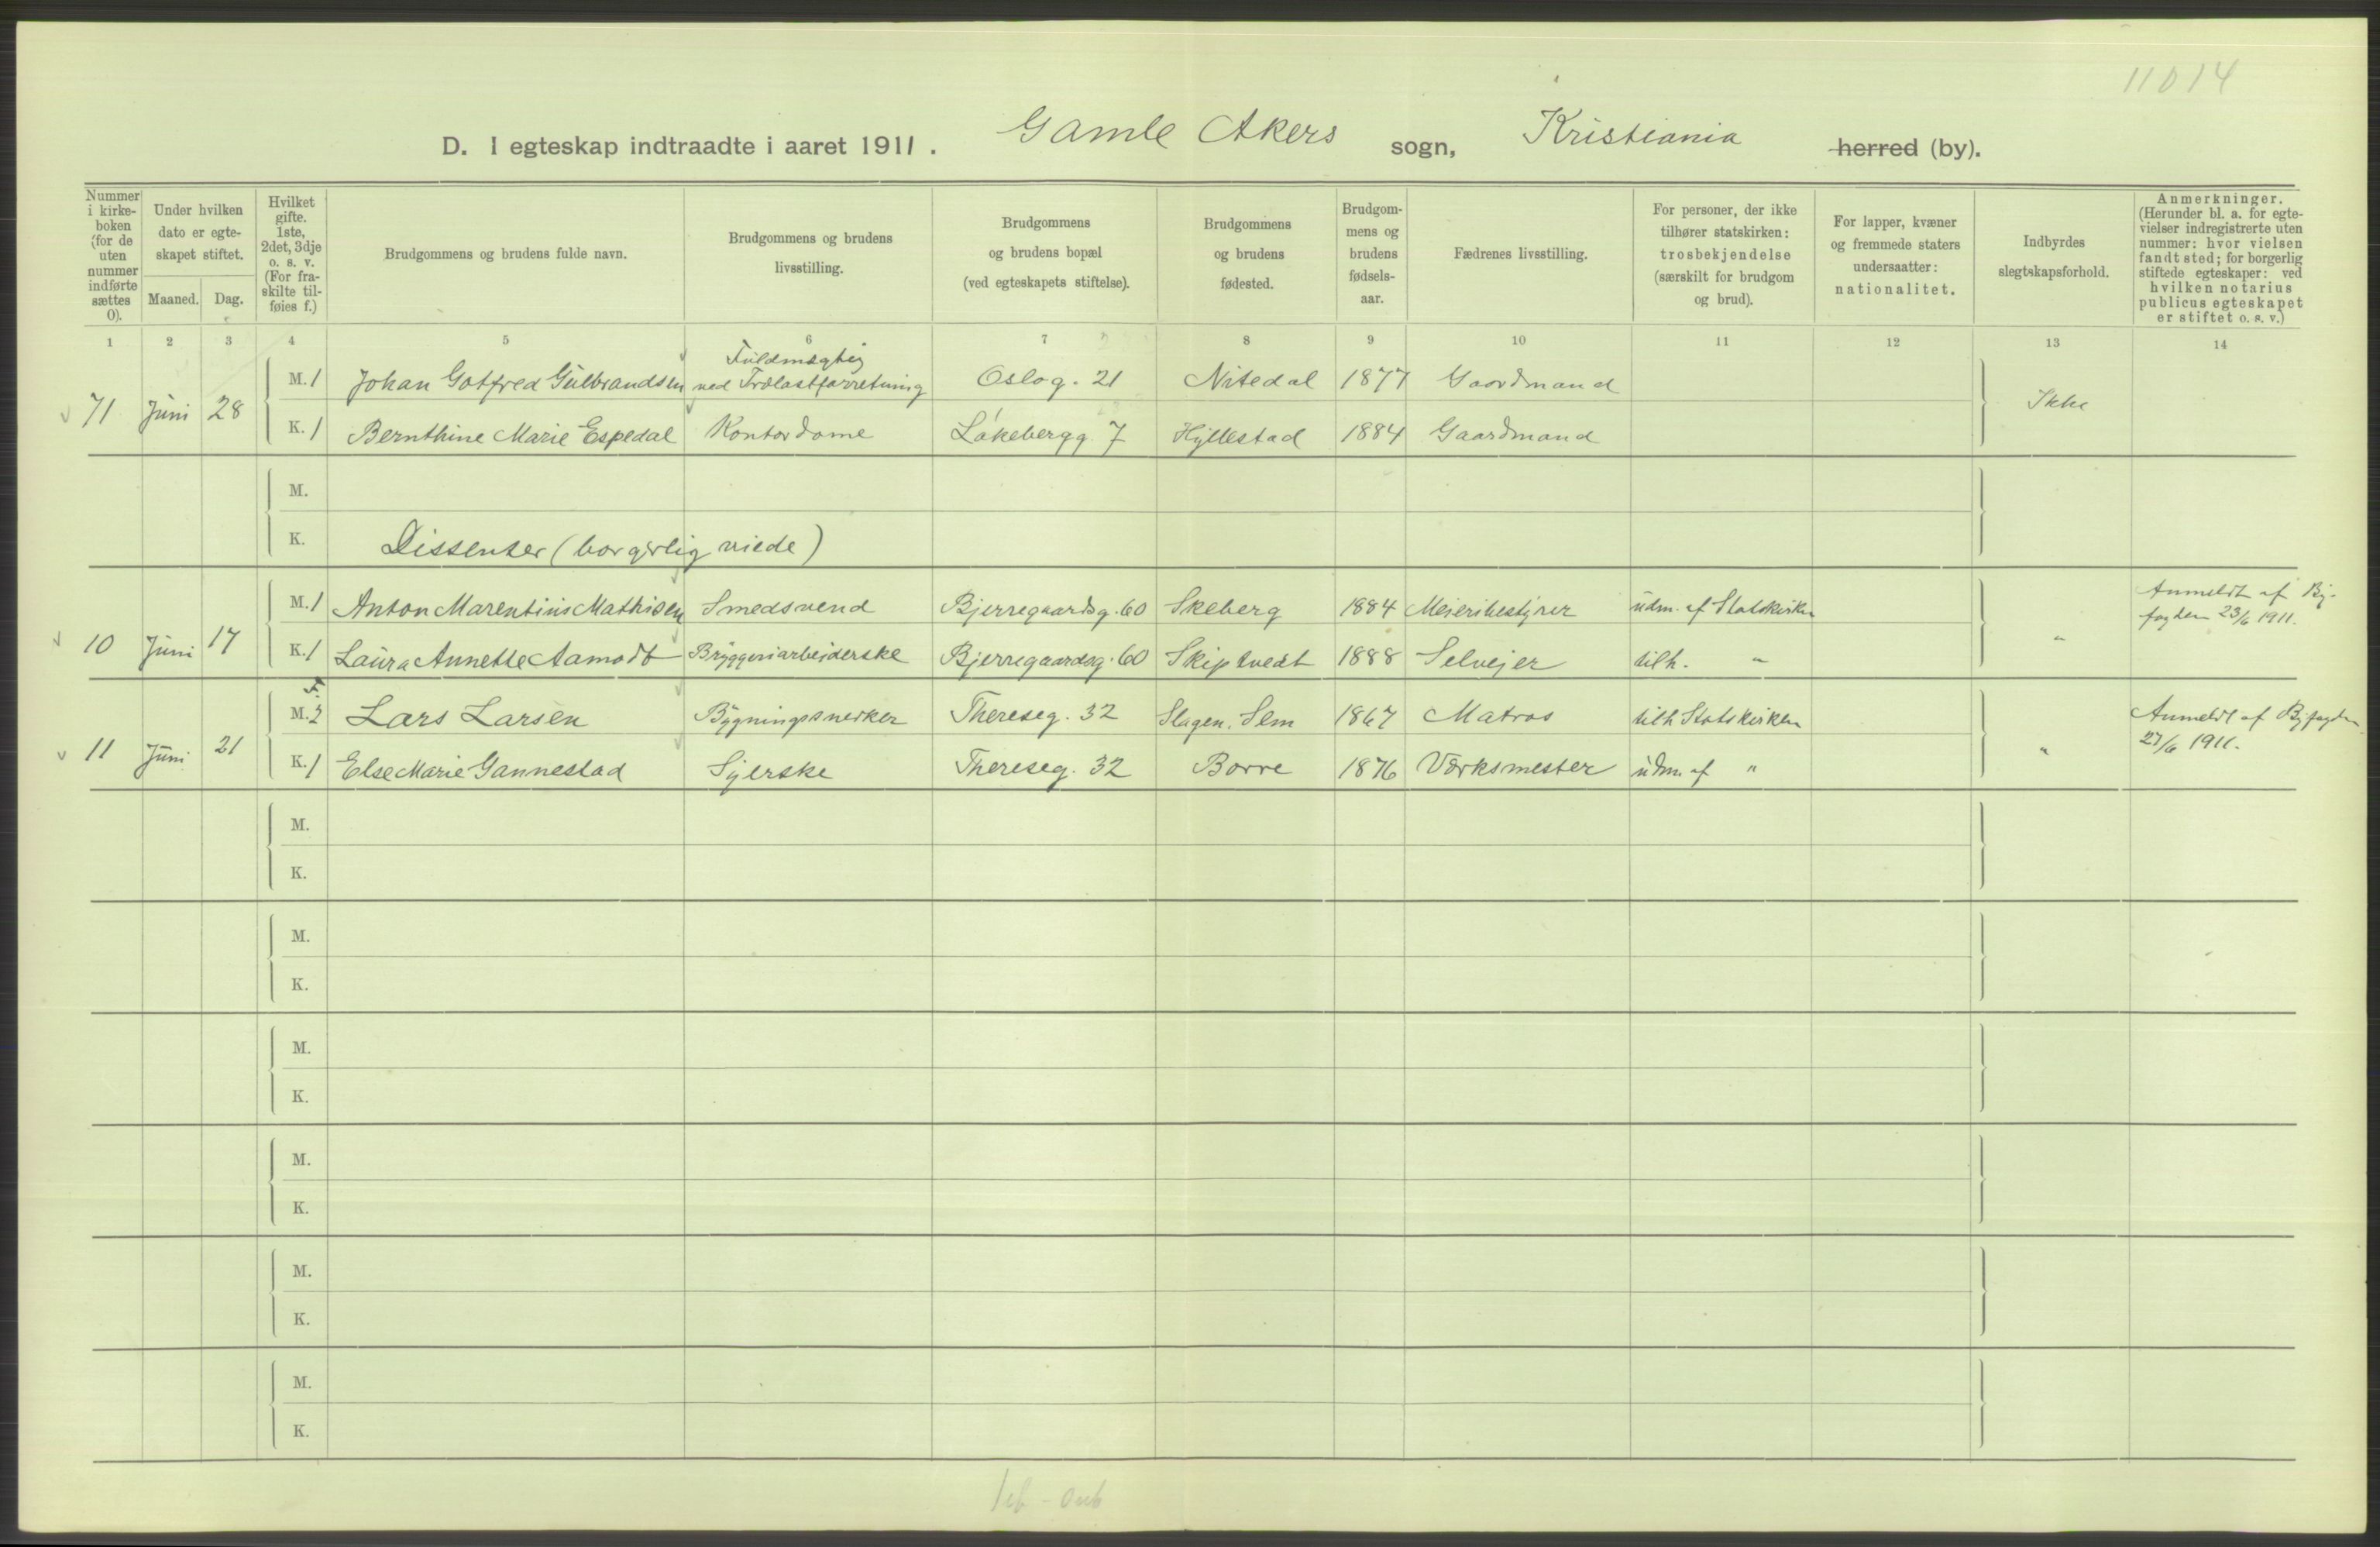 11014
D. I egteskap indtraadte i aaret 1911. Gamle Akers sogn, Kristiania herred (by).
Nummer i kirke-boken (for de uten nummer indførte sættes 0).
Under hvilken dato er egte-skapet stiftet.
Maaned. Dag.
Hvilket gifte. 1ste, 2det, 3dje o. s. v. (For fra-skilte til-føies f.)
Brudgommens og brudens fulde navn.
Brudgommens og brudens livsstilling.
Brudgommens og brudens bopæl (ved egteskapets stiftelse).
Brudgommens og brudens fødested.
Brudgom-mens og brudens fødsels-aar.
Fædrenes livsstilling.
For personer, der ikke tilhører statskirken: trosbekjendelse (særskilt for brudgom og brud).
For lapper, kvæner og fremmede staters undersaatter: nationalitet.
Indbyrdes slegtskapsforhold.
Anmerkninger. (Herunder bl. a. for egte-vielser indregistrerte uten nummer: hvor vielsen fandt sted; for borgerlig stiftede egteskaper: ved hvilken notarius publicus egteskapet er stiftet o. s. v.)
1 2 3 4 5 6 7 8 9 10 11 12 13 14
71 Juni 28
M. 1 Johan Gotfred Gulbrandsen Fuldmægtig ved Trælastforretning Oslog. 21 Nitedal 1877 Gaardmand
Ikke
K. 1 Bernthine Marie Espedal Kontordame Lakebergg. 7 Hyllestad 1884 Gaardmand
M.
K. Dissenter (borgerlig viede)
10 Juni 17
M. 1 Anton Marentius Mathisen Smedsvend Bjerregaardsg. 60 Skeberg 1884 Meieribestyrer udm. af Statskirken
Anmeldt af By-fogden 23/6 1911.
K. 1 Laura Annette Aamodt Bryggeriarbeiderske Bjerregaardsg. 60 Skiptvedt 1888 Selvejer tilh. " "
11 Juni 21
F.
M. 2 Lars Larsen Bygningssnekker Thereseg. 32 Slagen, Sem 1867 Matros tilh Statskirken
Anmeldt af Byfogden 27/6 1911.
K. 1 Else Marie Gannestad Syerske Thereseg. 32 Borre 1876 Værksmester udm. af " "
M.
K.
M.
K.
M.
K.
M.
K.
M.
K.
M.
K.